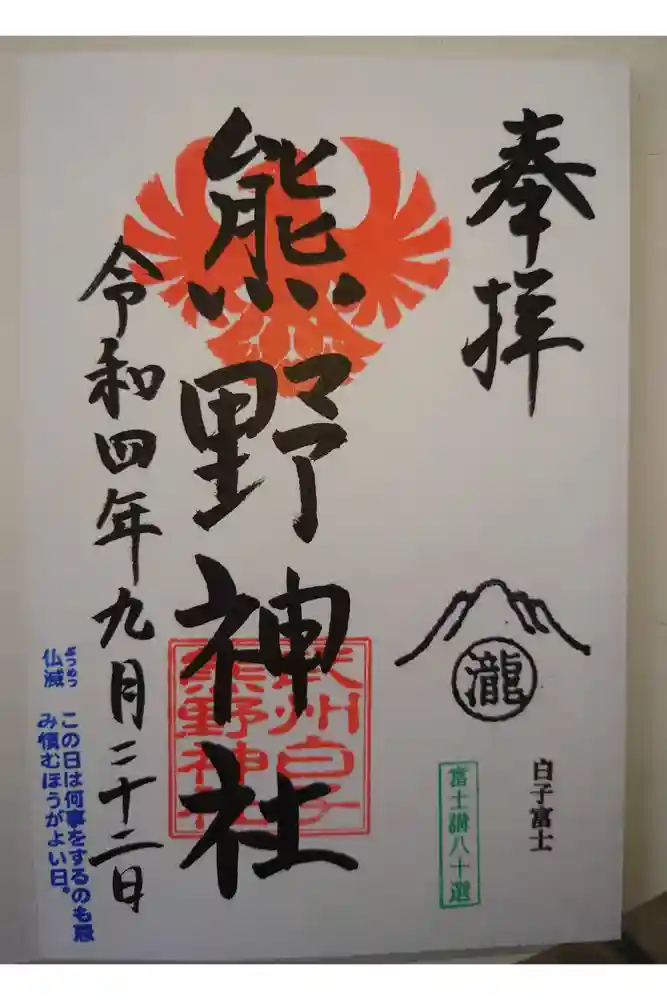 奉拝
瀧
白子富士
富士講八十選
熊野神社
武州白子
熊野神社
令和四年九月二十二日
ぶつめつ
仏滅
この日は何事をするのも忌
み慎むほうがよい日。